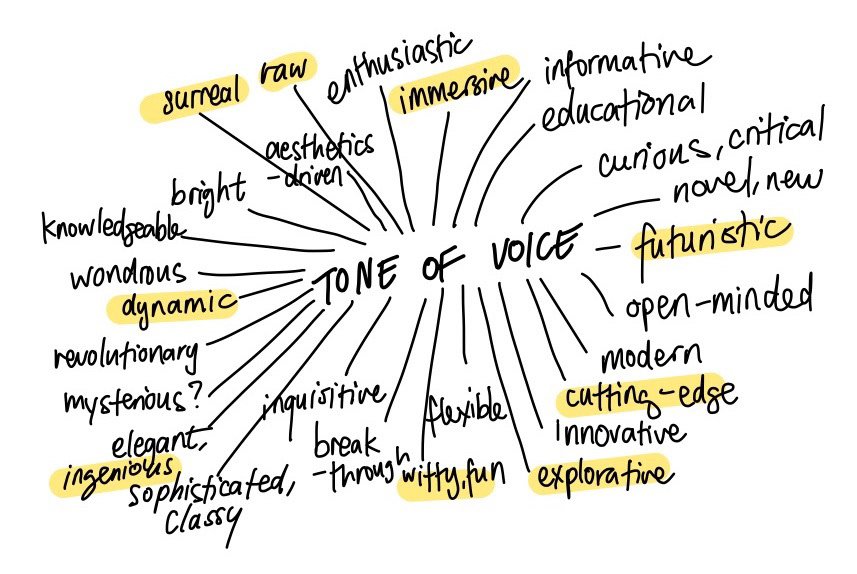 surreal
raw
enthusiastic
immersive
informative
educational
curious, critical
novel, new
futuristic
open-minded
modern
cutting-edge
Innovative
explorative
flexible
witty, fun
break
-through
inquisitive
sophisticated,
classy
elegant,
ingenious,
mysterious?
revolutionary
dynamic
wondrous
knowledgeable
bright
aesthetics
-driven
TONE OF VOICE